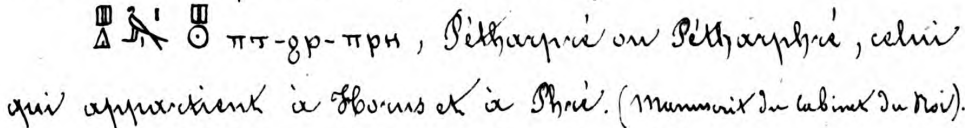 ⲡⲧ-ϩⲣ-ⲡⲣⲏ, Pétharpré ou Pétharphré, celui
qui appartient à Horus et à Phré. (Manuscrit du cabinet du Roi).